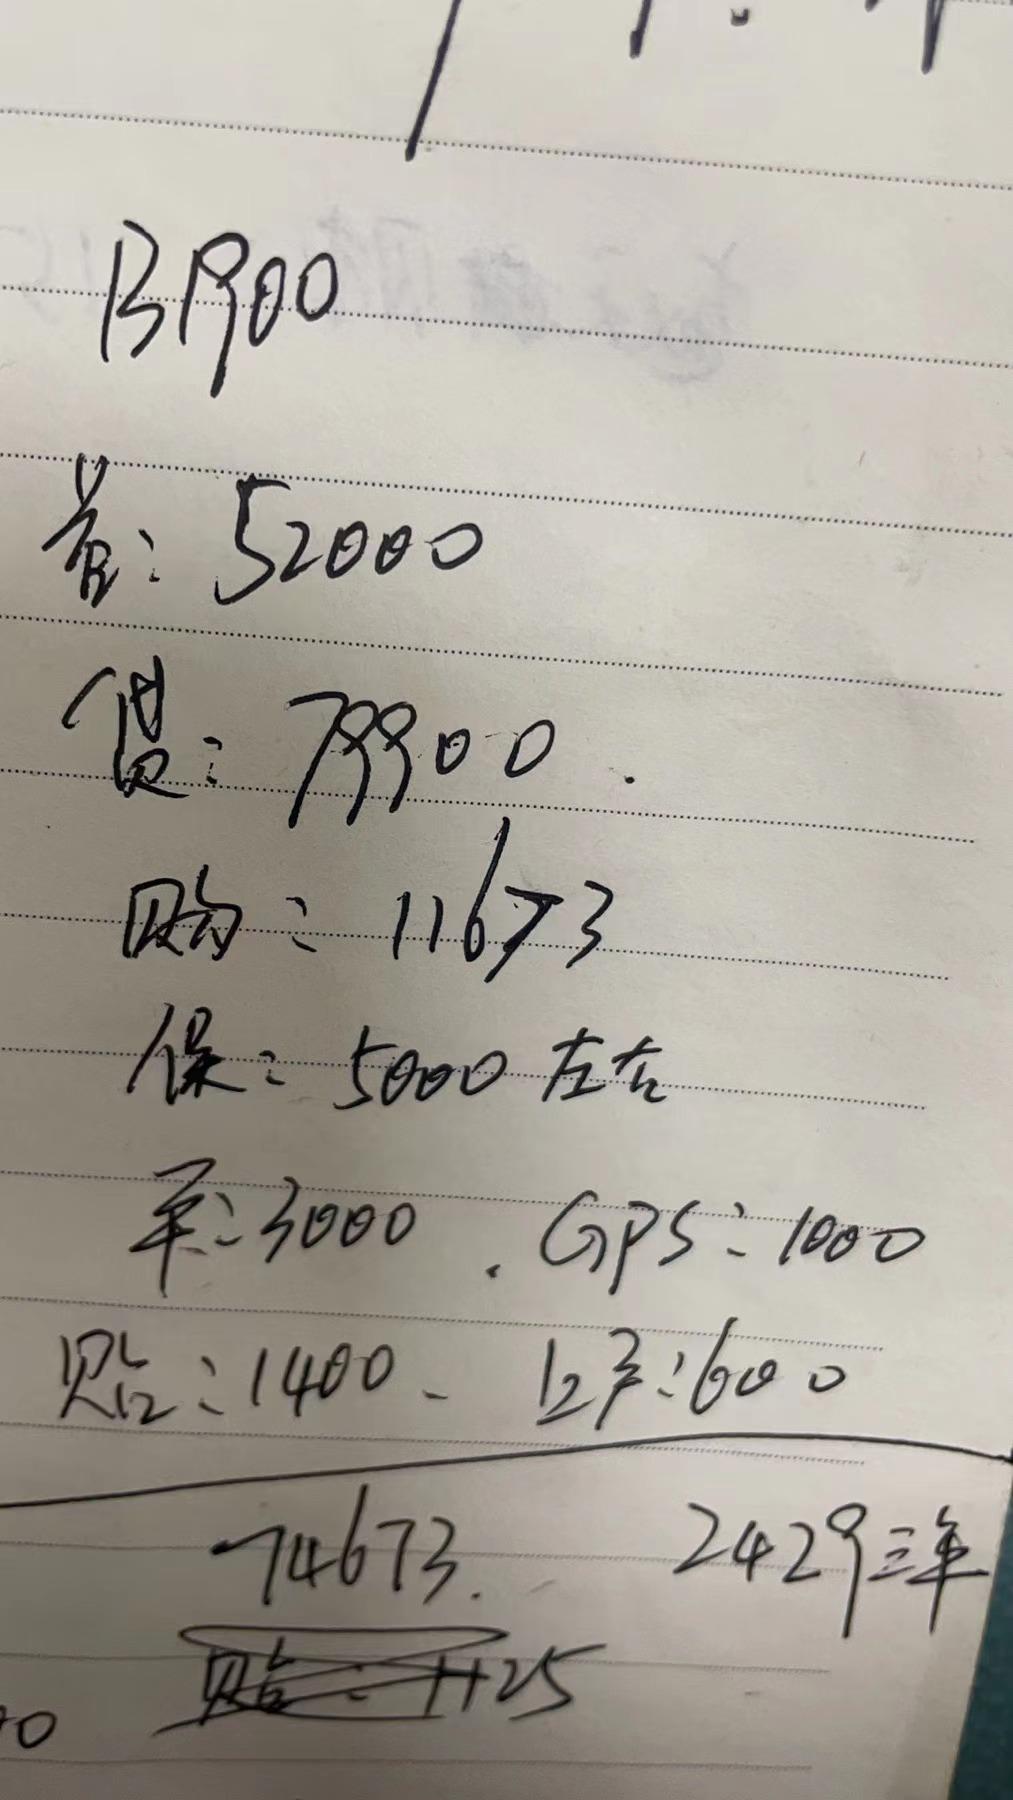 131900
首: 52000
贷: 79900.
购: 11673
保: 5000左右
平: 3000. GPS: 1000
贴: 1400、上户: 600
74673. 2429三年
1125